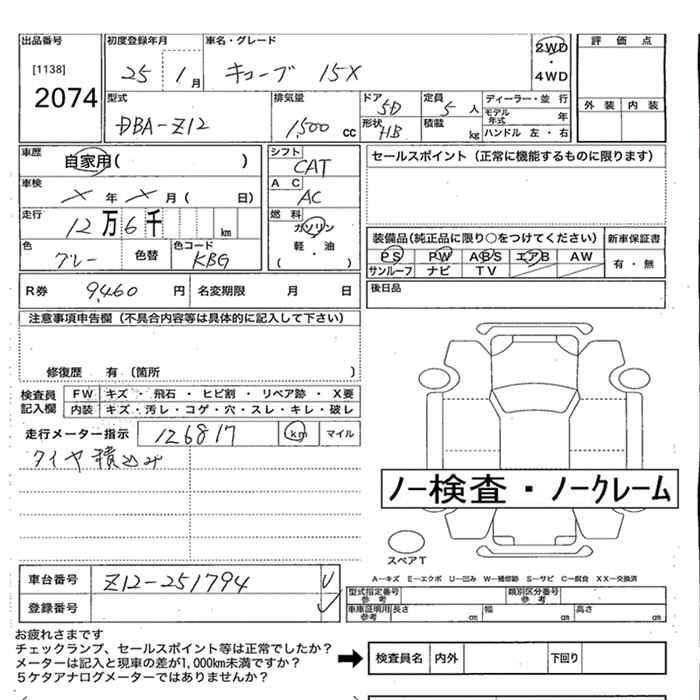 出品番号
[1138]
2074
初度登録年月
25 1月
車名・グレード
キューブ 15X
2WD
・
4WD
評価点
外装 内装
型式
DBA-Z12
排気量
1,500 cc
ドア 5D
形状 HB
定員 5人
積載 kg
ディーラー・並行
モデル年式 年
ハンドル 左・右
車歴
自家用( )
車検
× 年 × 月( 日)
走行
12万6千 km
色
グレー
色替
色コード
KBG
シフト
CAT
AC
AC
燃料
ガソリン
軽・油
( )
セールスポイント(正常に機能するものに限ります)
装備品(純正品に限り○をつけてください)
新車保証書
PS PW ABS エアB AW
サンルーフ ナビ TV
有・無
後日品
R券 9,460 円
名変期限 月 日
注意事項申告欄(不具合内容等は具体的に記入して下さい)
修復歴 有(箇所 )
検査員記入欄
FW キズ・飛石・ヒビ割・リペア跡・X要
内装 キズ・汚レ・コゲ・穴・スレ・キレ・破レ
走行メーター指示 126817 km マイル
タイヤ積込み
ノー検査・ノークレーム
スペアT
A－キズ E－エクボ U－凹み W－補修跡 S－サビ C－腐食 XX－交換済
車台番号 Z12-251794
登録番号
型式指定番号 参考
類別区分番号 参考
車庫証明用 参考 長さ cm 幅 cm 高さ cm
お疲れさまです
チェックランプ、セールスポイント等は正常でしたか?
メーターは記入と現車の差が1,000km未満ですか?
5ケタアナログメーターではありませんか?
検査員名 内外 下回り